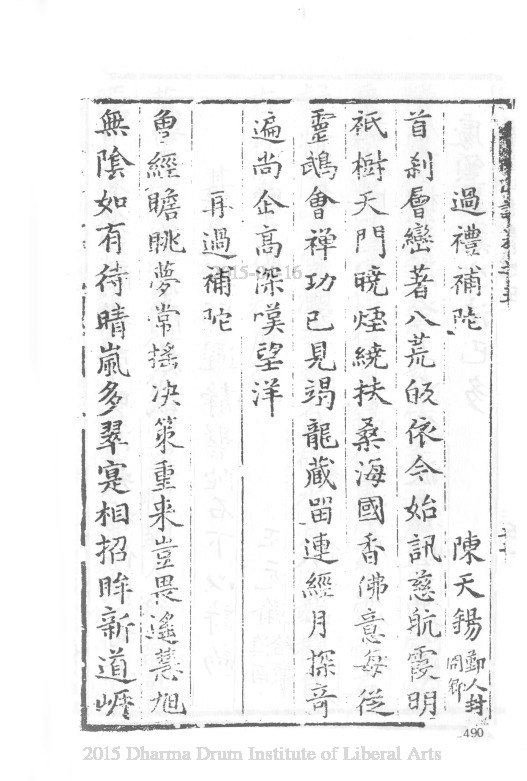 過禮補陀
陳天錫 鄞人封
首刹層巒著八荒皈依今始訊慈航霞明
祇樹天門曉煙繞扶桑海國香佛意每從
靈鵲會禪功已見竭龍藏畱連經月探奇
遍尚企高深嘆望洋
再過補陀
曾經瞻眺夢常搖決策重来豈畏遙慧旭
無隂如有待晴嵐多翠寔相招眸新道
490
2015 Dharma Drum Institute of Liberal Arts